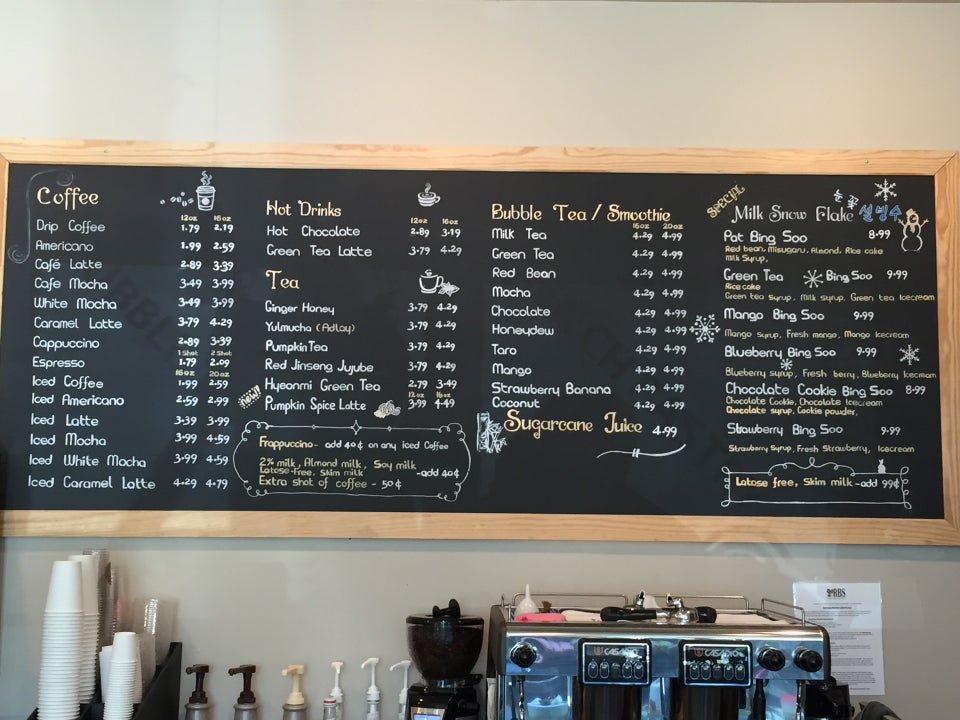 Coffee
12oz 16oz
Drip Coffee 1.79 2.19
Americano 1.99 2.59
Café Latte 2.89 3.39
Cafe Mocha 3.49 3.99
White Mocha 3.49 3.99
Caramel Latte 3.79 4.29
Cappuccino 2.89 3.39
1 Shot 2 Shot
Espresso 1.79 2.09
16oz 20oz
Iced Coffee 1.99 2.59
Iced Americano 2.59 2.99
Iced Latte 3.39 3.99
Iced Mocha 3.99 4.59
Iced White Mocha 3.99 4.59
Iced Caramel Latte 4.29 4.79
Hot Drinks
12oz 16oz
Hot Chocolate 2.89 3.19
Green Tea Latte 3.79 4.29
Tea
Ginger Honey 3.79 4.29
Yulmucha (Adlay) 3.79 4.29
Pumpkin Tea 3.79 4.29
Red Jinseng Jyjube 3.79 4.29
Hyeonmi Green Tea 2.79 3.49
12oz 16oz
Pumpkin Spice Latte 3.99 4.49
Frappuccino- add 40¢ on any iced Coffee
2% milk, Almond milk, Soy milk
Latose-Free, Skim milk -add 40¢
Extra shot of coffee - 50¢
Bubble Tea / Smoothie
16oz 20oz
Milk Tea 4.29 4.99
Green Tea 4.29 4.99
Red Bean 4.29 4.99
Mocha 4.29 4.99
Chocolate 4.29 4.99
Honeydew 4.29 4.99
Taro 4.29 4.99
Mango 4.29 4.99
Strawberry Banana 4.29 4.99
Coconut 4.29 4.99
Sugarcane Juice 4.99
SPECIAL
Milk Snow Flake 설빙수
Pat Bing Soo 8.99
Red bean, Misugaru, Almond, Rice cake
Milk Syrup,
Green Tea Bing Soo 9.99
Rice cake
Green tea syrup, Milk syrup, Green tea Icecream
Mango Bing Soo 9.99
Mango syrup, Fresh mango, Mango Icecream
Blueberry Bing Soo 9.99
Blueberry syrup, Fresh berry, Blueberry Icecream
Chocolate Cookie Bing Soo 8.99
Chocolate Cookie, Chocolate Icecream
Chocolate syrup, Cookie powder,
Strawberry Bing Soo 9.99
Strawberry Syrup, Fresh Strawberry, Icecream
Latose free, Skim milk -add 99¢
CASADIO CASADIO